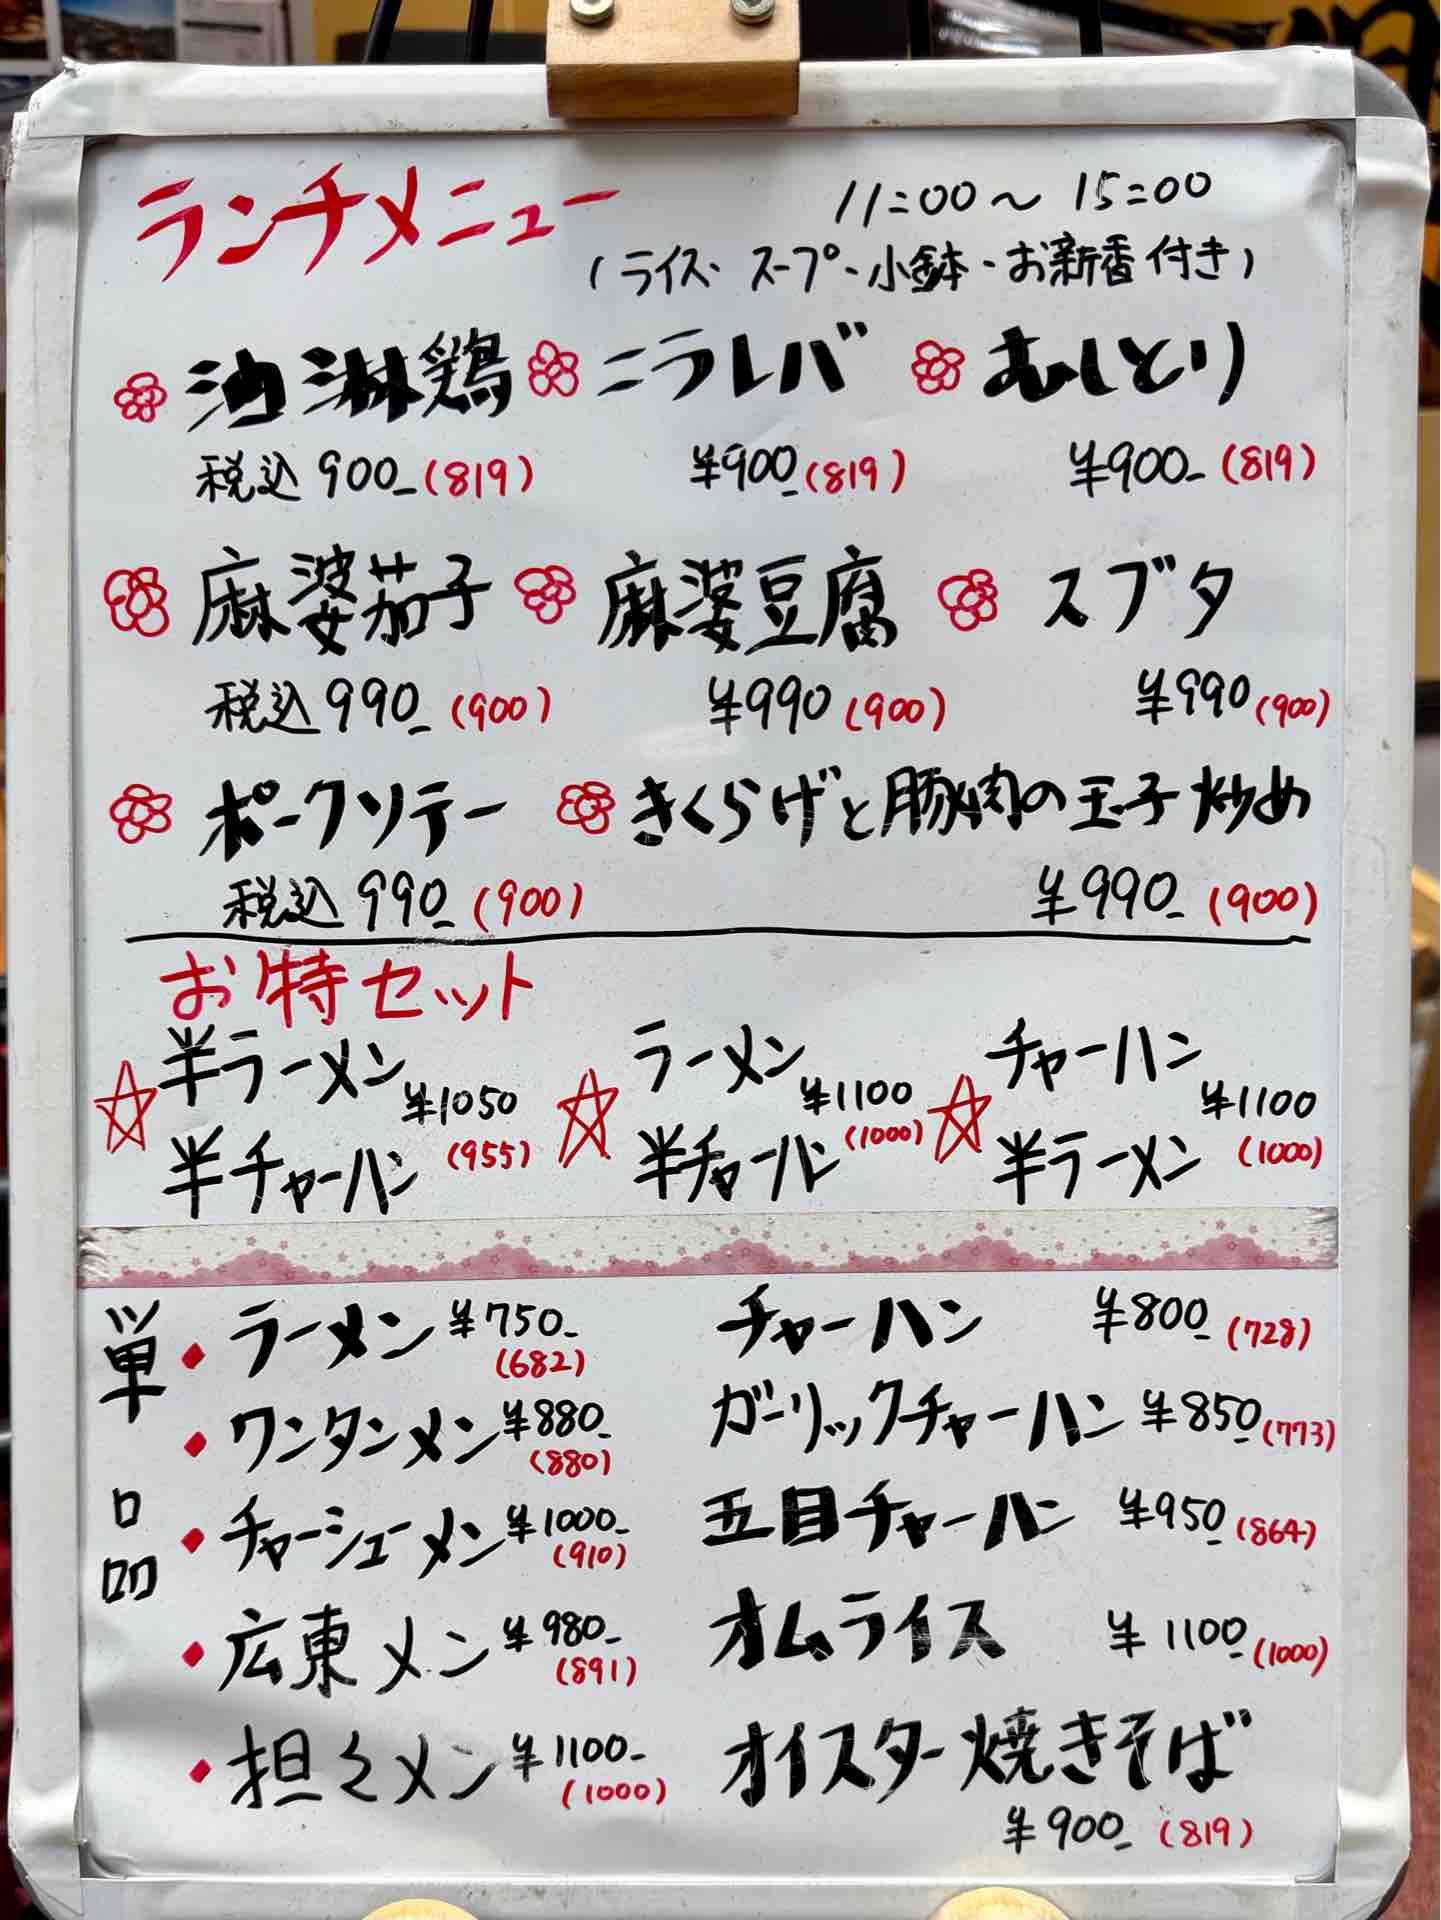 ランチメニュー 11:00～15:00
(ライス・スープ・小鉢・お新香付き)
油淋鶏 ニラレバ むしとり
税込900-(819) ¥900-(819) ¥900-(819)
麻婆茄子 麻婆豆腐 スブタ
税込990-(900) ¥990(900) ¥990(900)
ポークソテー きくらげと豚肉の玉子炒め
税込990-(900) ¥990-(900)
お得セット
半ラーメン ¥1050 ラーメン ¥1100 チャーハン ¥1100
半チャーハン (955) 半チャーハン (1000) 半ラーメン (1000)
単品
ラーメン ¥750- (682) チャーハン ¥800- (728)
ワンタンメン ¥880- (880) ガーリックチャーハン ¥850-(773)
チャーシューメン ¥1000- (910) 五目チャーハン ¥950-(864)
広東メン ¥980- (891) オムライス ¥1100-(1000)
担々メン ¥1100- (1000) オイスター焼きそば
¥900- (819)